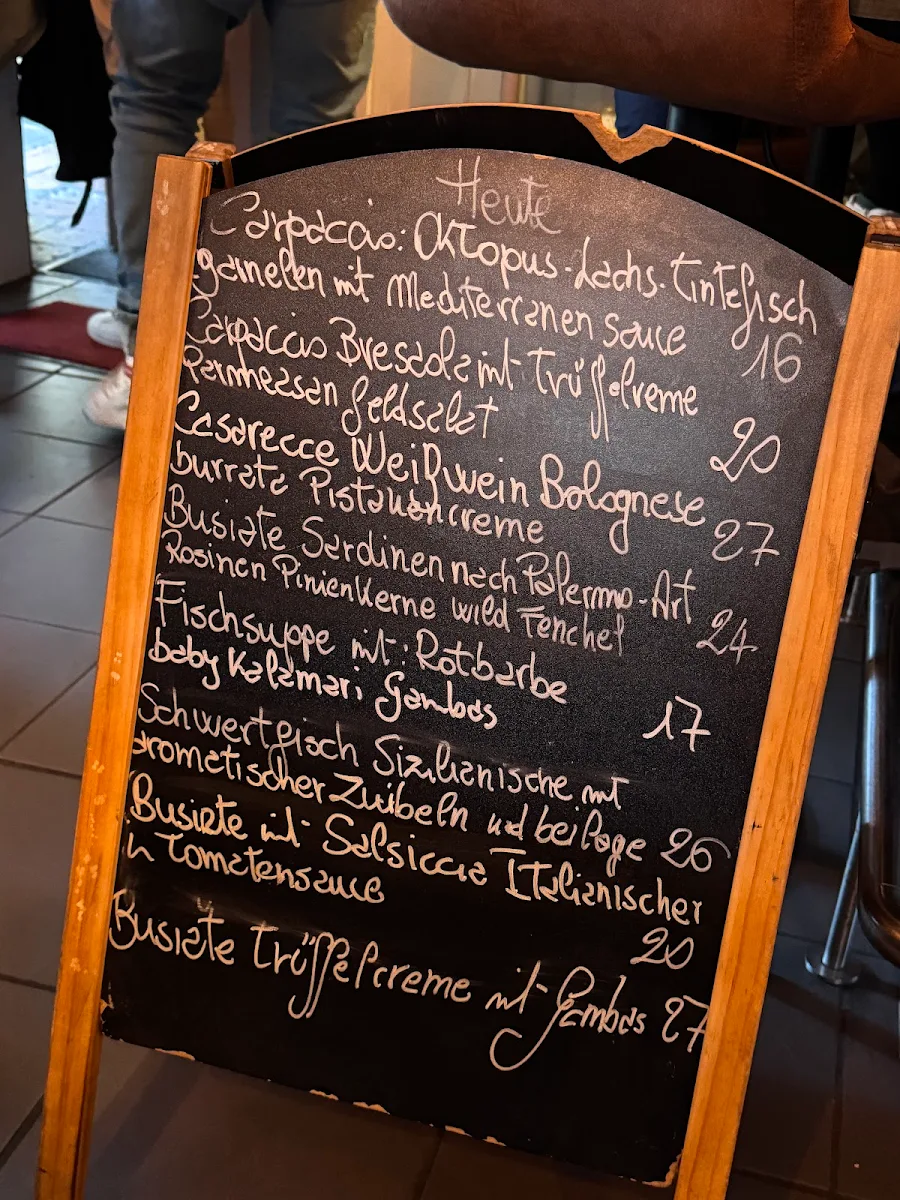 Heute
Carpaccio: Oktopus-Lachs-Tintefisch
garnelen mit Mediterranen sauce
16
Carpaccio Bresaola mit Trüffelcreme
Parmheasan feldsalat
20
Casarecce Weißwein Bolognese
burrata Pistaziencreme
27
Busiate Sardinen nach Palermo-Art
Rosinen Pinienkerne wild Fenchel
24
Fischsuppe mit: Rotbarbe
baby Kalamari Gambas
17
Schwertfisch Sizilianische mit
aromatischer Zwibeln und beilage 26
Busiate mit Salsiccia Italienischer
in Tomatensauce
20
Busiate Trüffelcreme mit Gambas 27